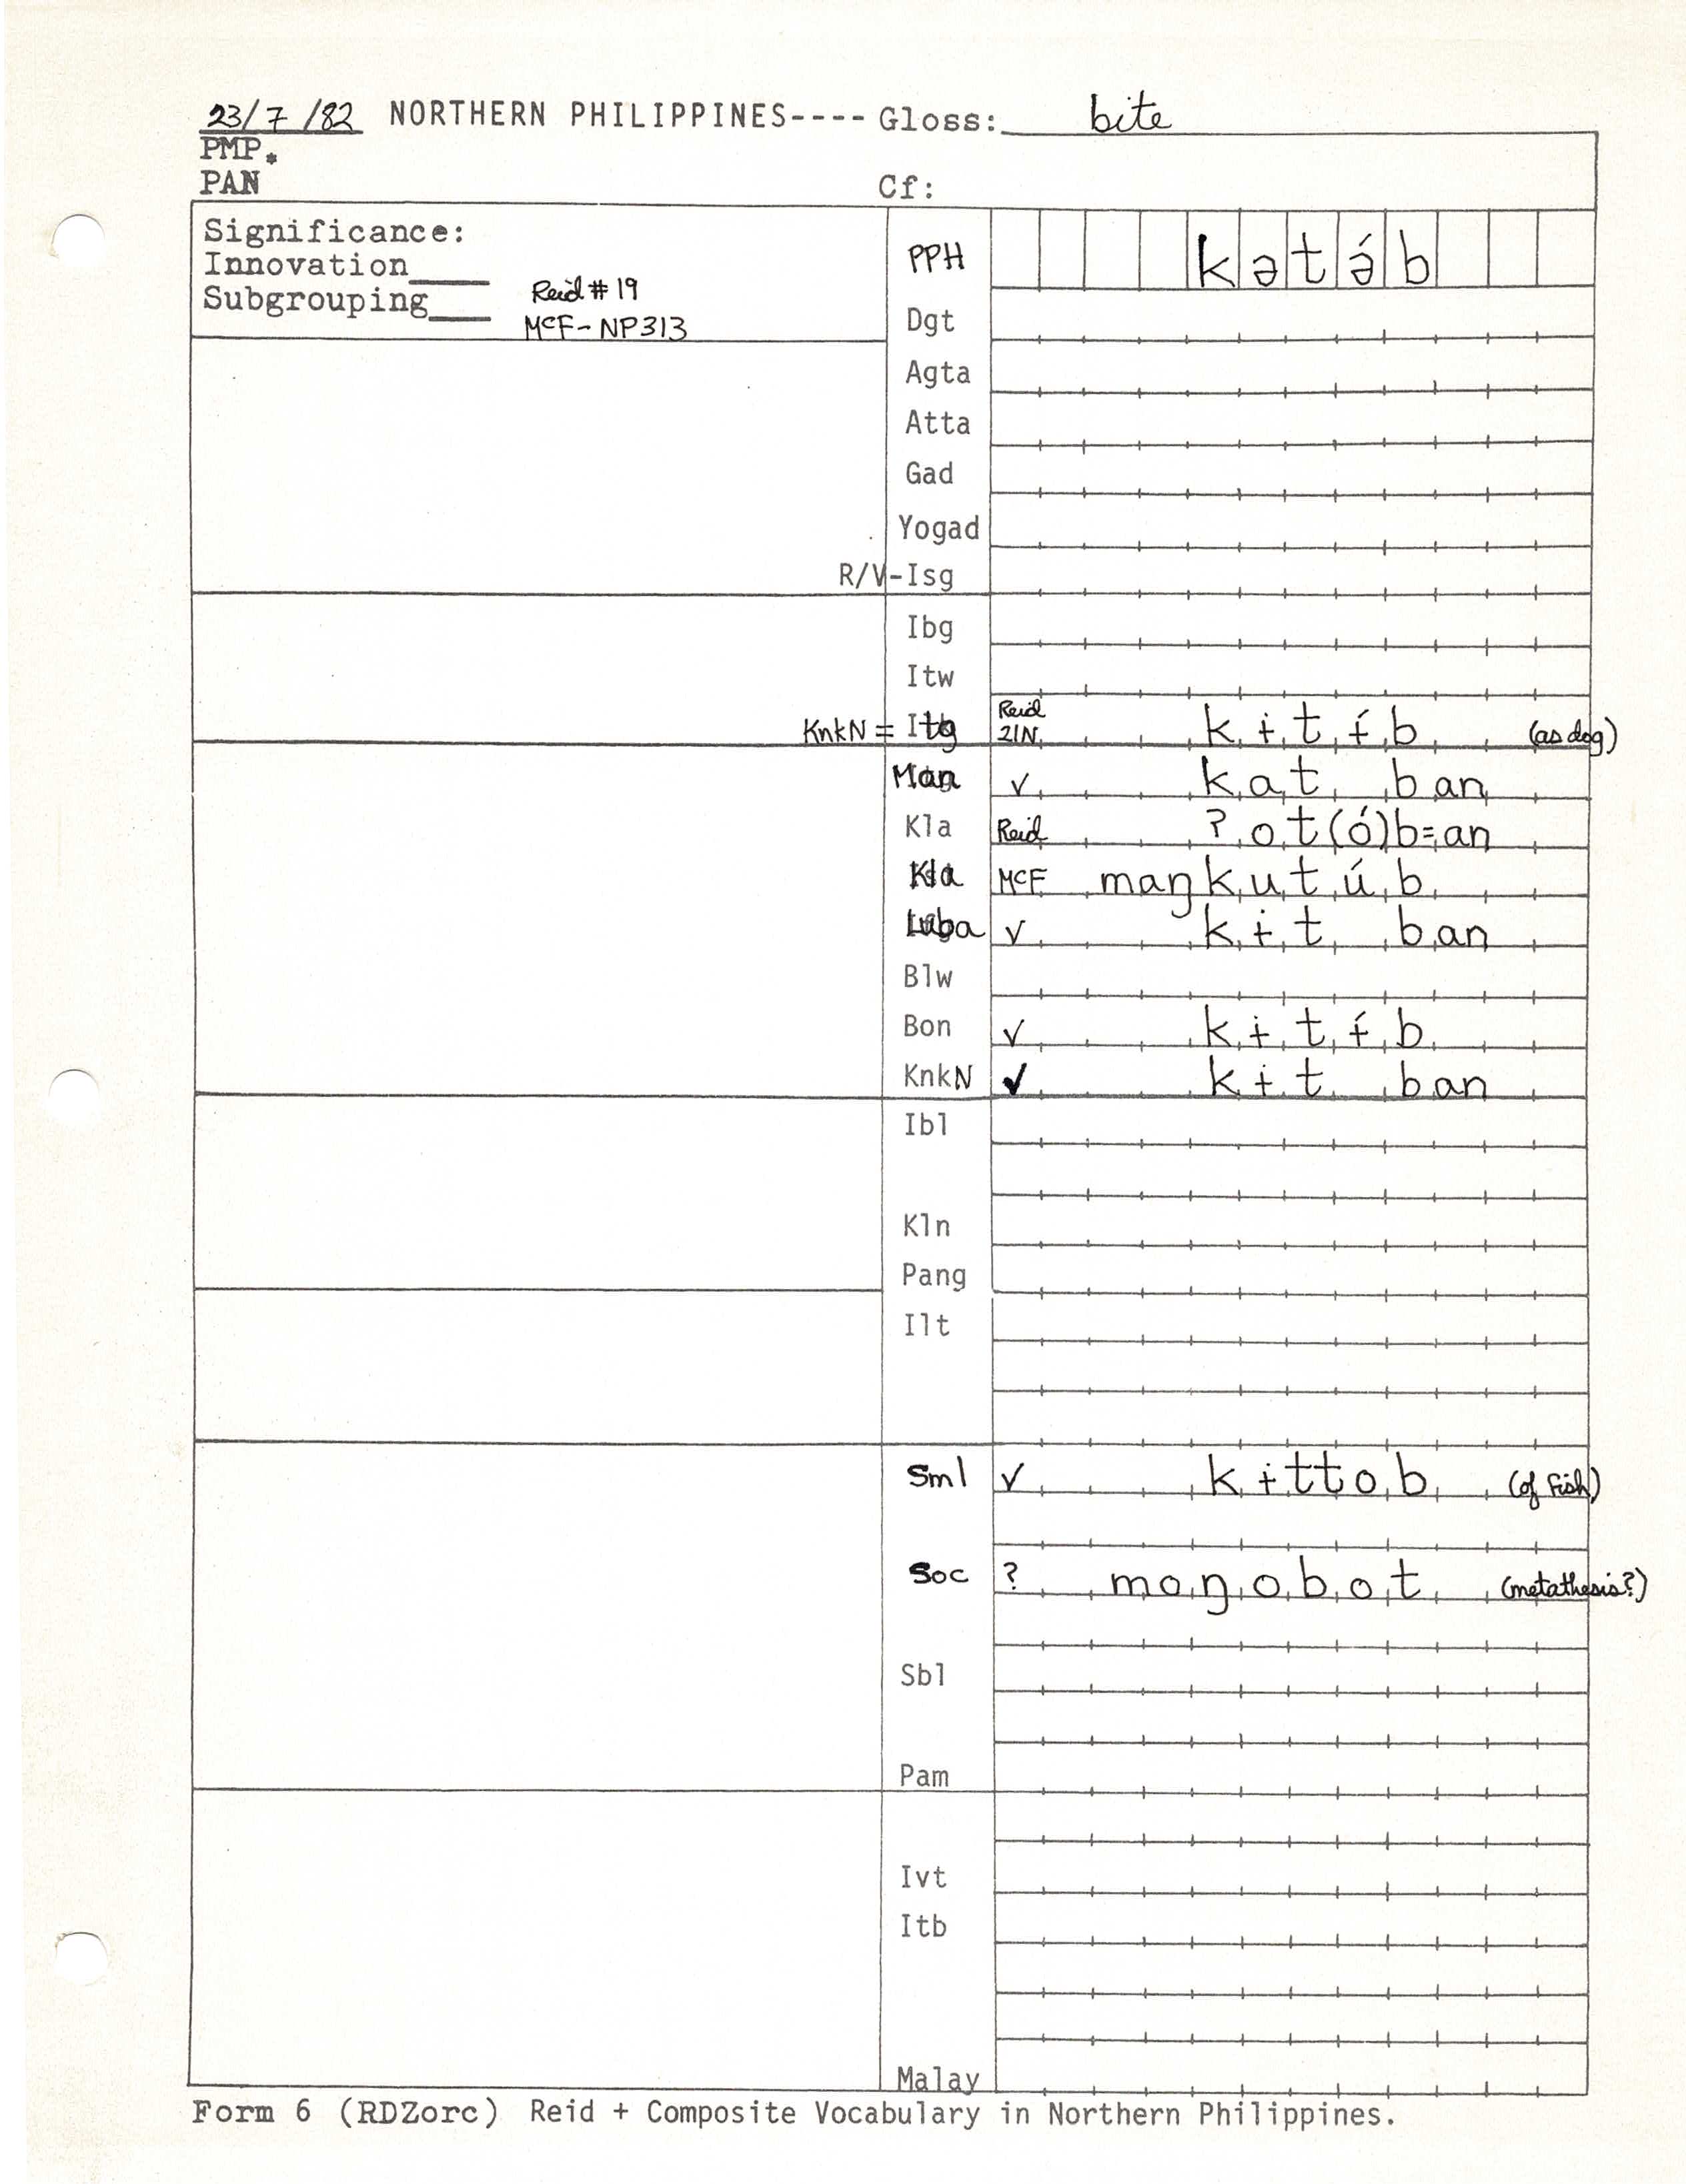 23/7/82 NORTHERN PHILIPPINES---- Gloss: bite
PMP.
PAN Cf:
Significance:
Innovation____
Subgrouping____
Reid # 19
McF-NP313
PPH kətə́b
Dgt
Agta
Atta
Gad
Yogad
R/V-Isg
Ibg
Itw
KnkN = Itg Reid 21N kɨtɨ́b (as dog)
Man ✓ kat ban
Kla Reid ?ot(ó)b=an
Kla McF maŋkutúb
Luba ✓ kɨt ban
Blw
Bon ✓ kɨtɨ́b
KnkN ✓ kɨt ban
Ibl
Kln
Pang
Ilt
Sml ✓ kɨttob (of fish)
Soc ? moŋobot (metathesis?)
Sbl
Pam
Ivt
Itb
Malay
Form 6 (RDZorc) Reid + Composite Vocabulary in Northern Philippines.